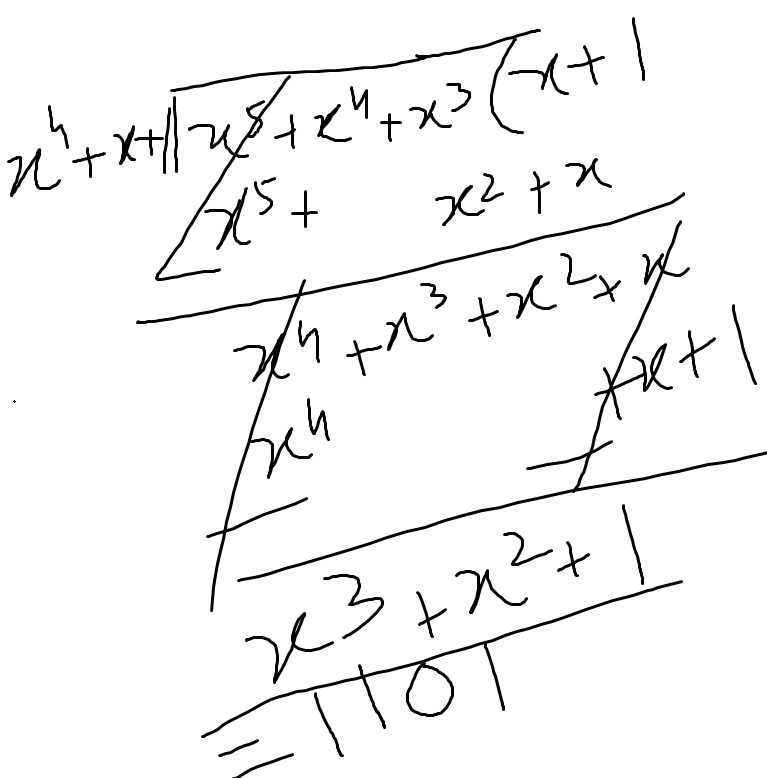 x⁴+x+1|x⁵+x⁴+x³(x+1
x⁵+ x²+x
x⁴+x³+x²+x
x⁴ +x+1
x³+x²+1
=1101